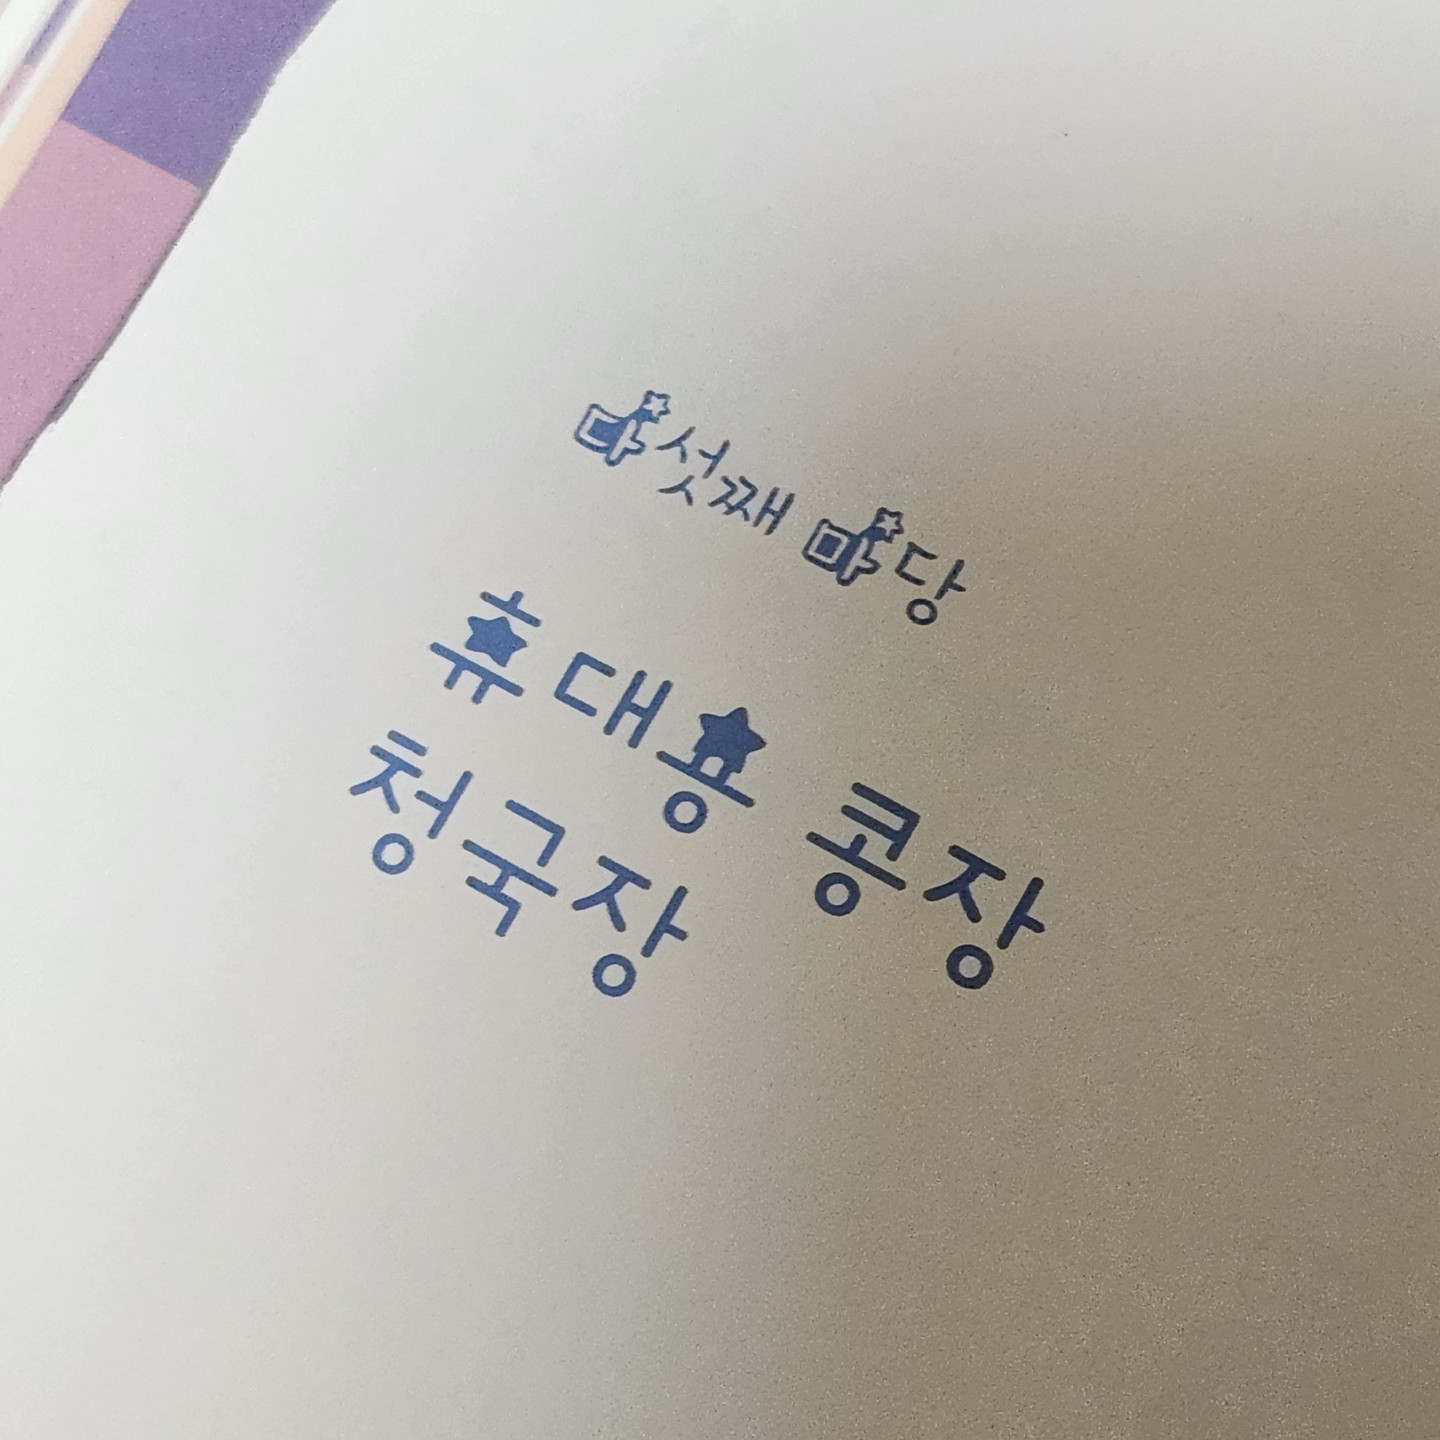 다섯째 마당
휴대용 콩장
청국장